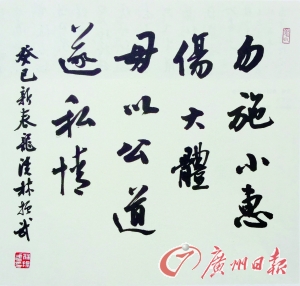 勿施小惠
傷大體
毋以公道
遂私情
癸巳新春龍潭林哲武
廣州日報